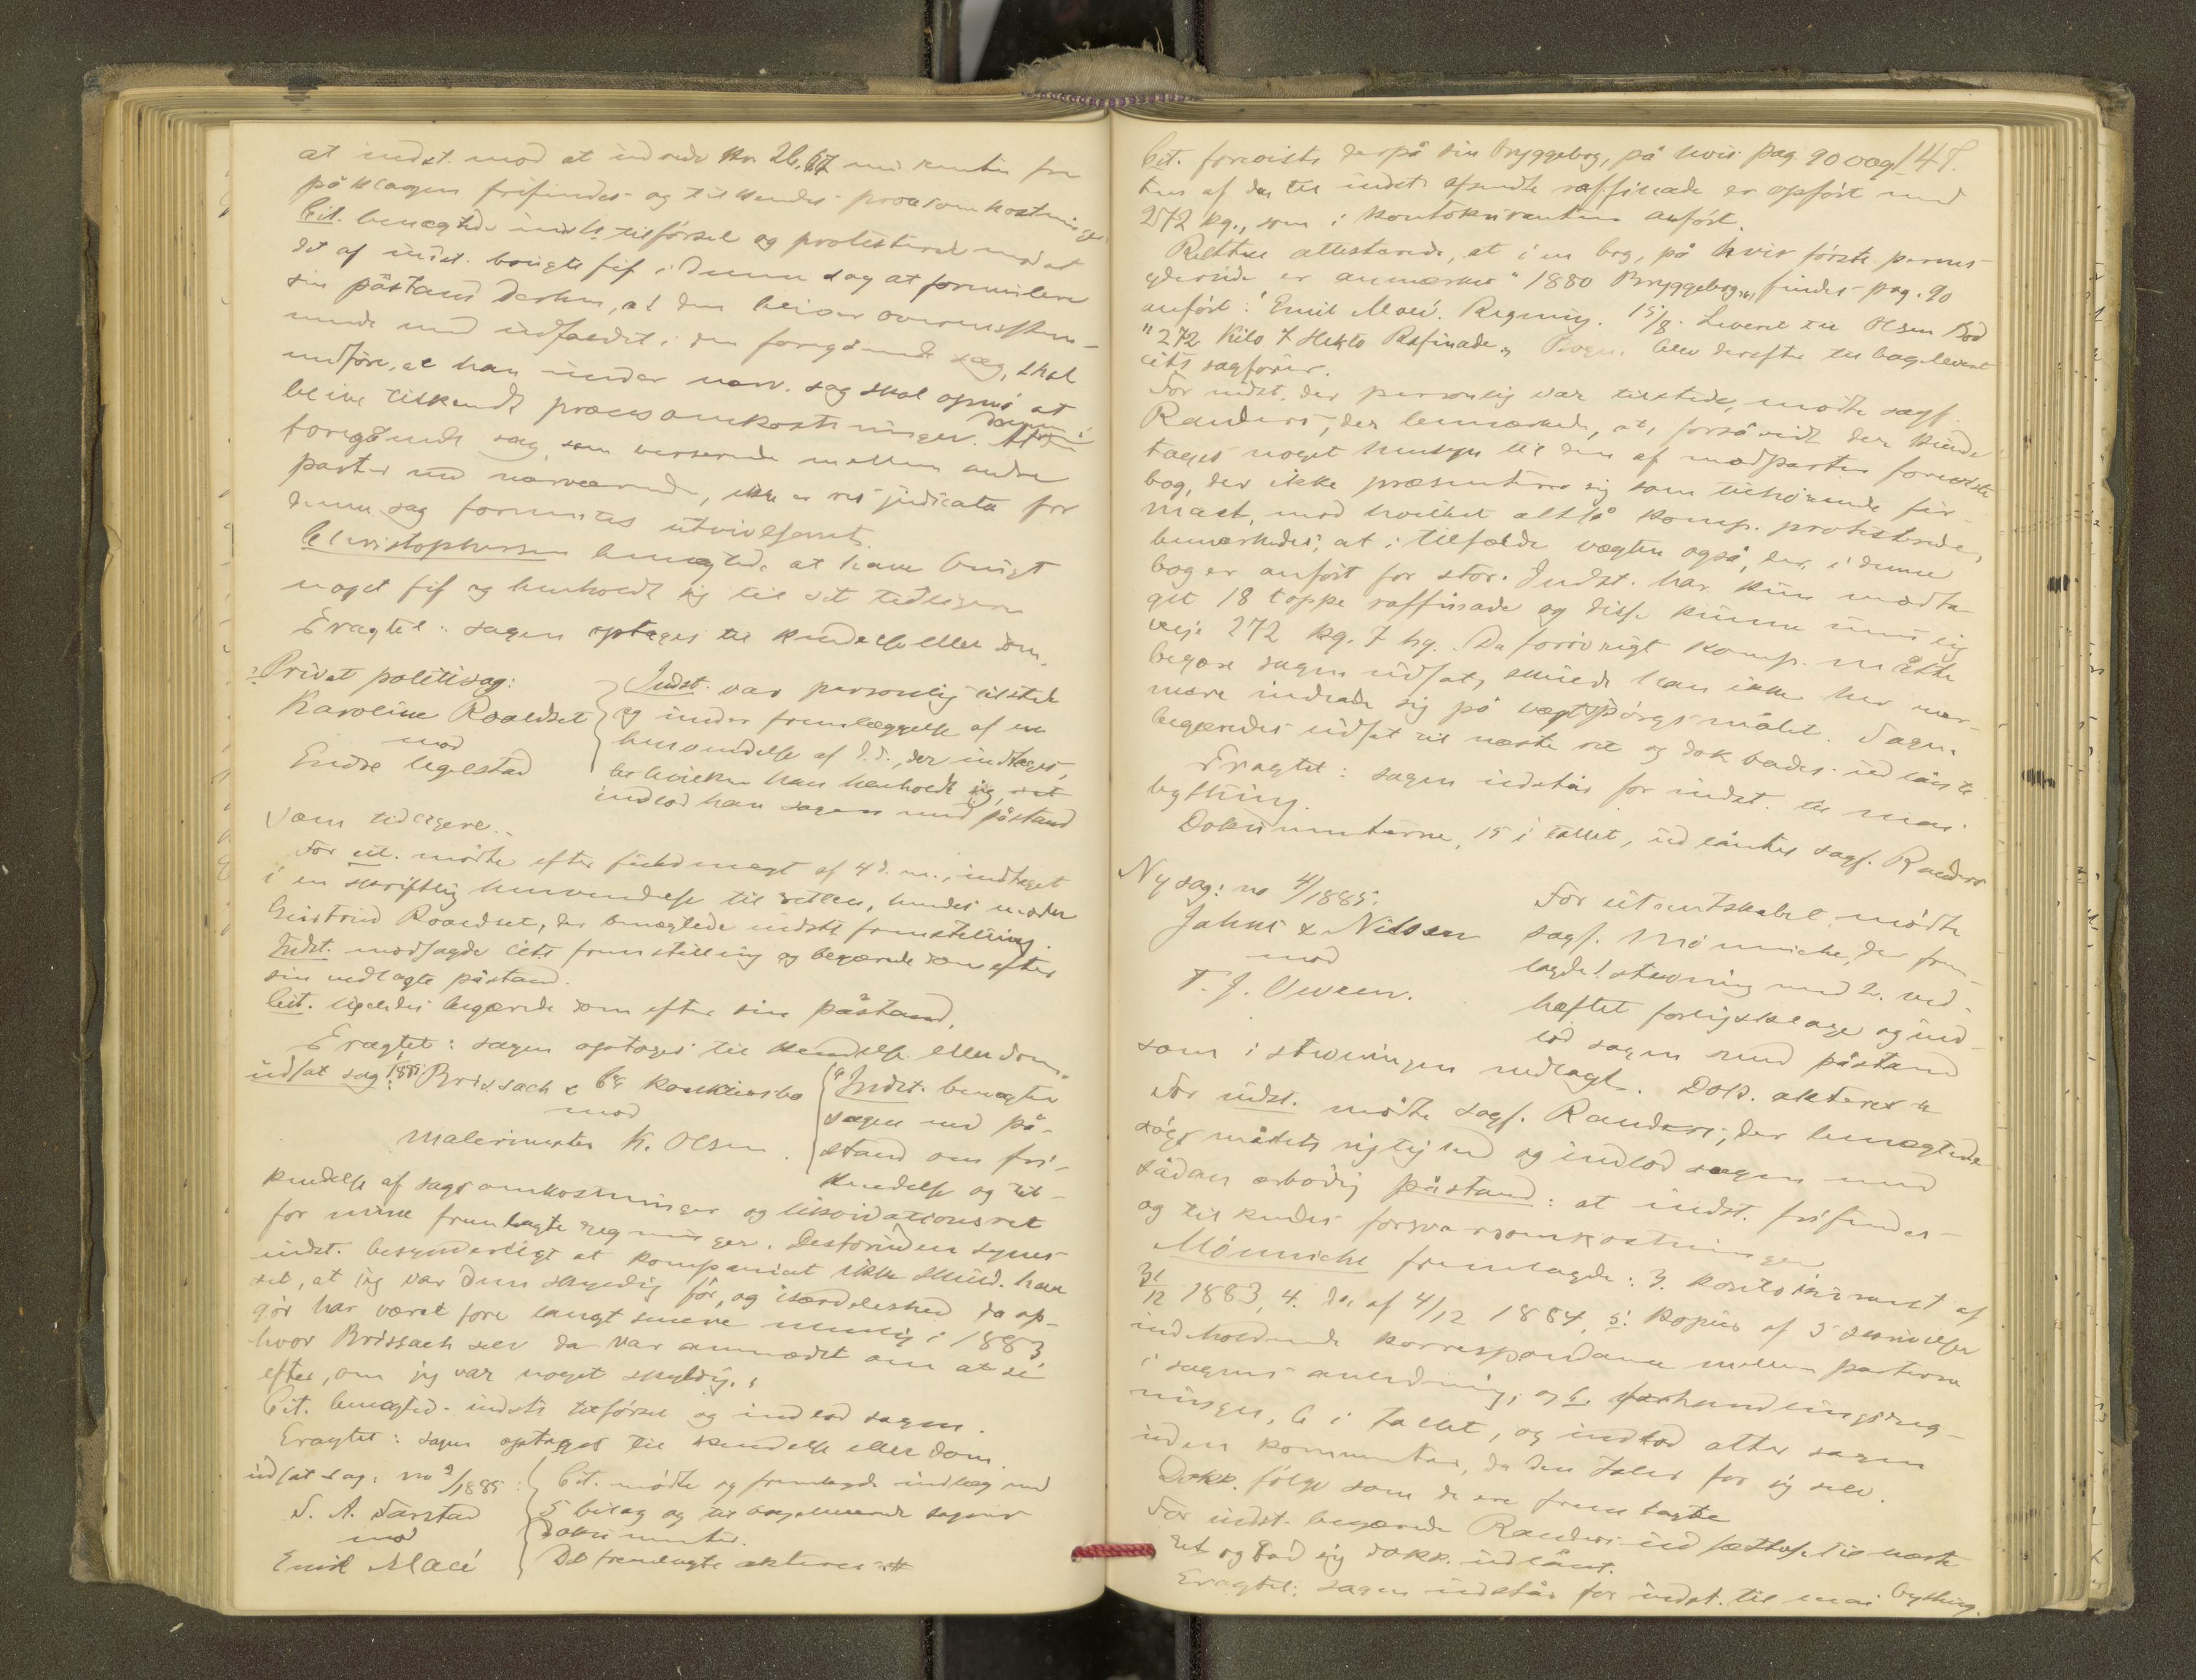 at indst. mod at udrede Kr. 26.67 med renter fra
påklagen frifindes og tilkendes procesomkostninger
Cit. benægtede indsts tilførsel og protesterede mod at
det af indst. brugte fif i denne sag at formulere
sin påstand derhen, at den bliver overensstem-
mende med udfaldet i den foregående sag, skal
medføre, at han under nærv. sag skal opnå at
blive tilkendt procesomkostninger. At den
foregående sag, som verserede mellem andre
parter end nærværende, ikke er res judicata for
denne sag formentes utvivlsomt.
Christophersen benægtede at have brugt
noget fif og henholdt sig til det tidligere
Eragtet: sagen optages til kendelse eller dom.
Privat politisag:
Karoline Roaldset
mod
Endre Ugelstad
Indst. var personlig tilstede
og under fremlæggelse af en
henvendelse af d.d., der indtages,
til hvilken han henholdt sig,
indlod han sagen med påstand
som tidligere.
For cit. mødte efter fuldmagt af 4 d. m., indtaget
i en skriftlig henvendelse til retten, hendes moder
Roaldset, der benægtede indsts fremstilling.
Indst. modsagde cits fremstilling og begærede dom efter
sin nedlagte påstand.
Cit. ligeledes begærede dom efter sin påstand.
Eragtet: sagen optages til kendelse eller dom.
udsat sag 1885: Brissach & Co konkursbo
mod
Malermester K. Olsen.
"Indst. benægter
sagen med på-
stand om fri-
kendelse og til-
kendelse af sagsomkostninger og likvidationsret
for mine fremlagte regninger. Desforuden synes
indst. besynderligt at kompaniet ikke skulde have
set, at jeg var dem skyldig før, og især deleshed da op-
gør har været fore langt senere nemlig i 1883
hvor Brissach selv da var anmodet om at se
efter, om jeg var noget skyldig."
Cit. benægtede indsts tilførsel og indlod sagen.
Eragtet: sagen optages til kendelse eller dom.
udsat sag: no 2/1885:
S. A. Farstad
mod
Emil Macé
Cit. mødte og fremlagde indlæg med
5 bilag og tilbageleverede sagens
dokumenter.
Det fremlagte akteres
Cit. foreviste derpå sin bryggebog, på hvis pag. 90 væg- 147.
ten af den til indst. afsendte raffinade er opført med
272 kg., som i kontokuranten anført.
Retten attesterede, at i en bog, på hvis første perms
yderside er anmærket "1880 Bryggebog", findes pag. 90
anført: "Emil Macé. Regning. 15/8. Leveret til Olsen Bød
"272 Kilo 7 Hekto Rafinade". Bogen blev derefter tilbageleveret
cits sagfører.
For indst., der personlig var tilstede, mødte sagf.
Randers, der bemærkede, at, forsåvidt der kunde
tages noget hensyn til den af modparten foreviste
bog, der ikke præsenterer sig som tilhørende fir-
maet, mod hvilket altså komp. protesterede,
bemærkedes, at i tilfælde vægten også her i denne
bog er anført for stor. Indst. har kun modta-
get 18 toppe raffinade og disse kunne umulig
veje 272 kg. 7 hg. Da forøvrigt komp. måtte
begære sagen udsat, skulde han ikke her nær-
mere indlade sig på vægtspørgsmålet. Sagen
begæredes udsat til næste ret og dok bades udlånte
Eragtet: sagen udstår for indst. til mai
bything.
Dokumenterne, 15 i tallet, udlåntes sagf. Randers
Ny sag: no 4/1885:
Jahns & Nilssen
mod
T. J. Owren.
For citantskabet mødte
sagf. Mönniche, der frem-
lagde 1. stævning med 2. ved-
hæftet forligsklage og ind-
lod sagen med påstand
som i stævningen nedlagt. Dok. akteres
For indst. mødte sagf. Randers, der benægtede
søgsmålets rigtighed og indlod sagen med
sådan ærbødig påstand: at indst. frifindes
og tilkendes forsvarsomkostninger
Mönniche fremlagde: 3. kontokurant af
31/12 1883, 4. do. af 4/12 1884, 5. kopier af 5 skrivelser
indeholdende korrespondance mellem parterne
i sagens anledning, og 6. forhandlingsreg-
ninger, 6 i tallet, og indlod atter sagen
uden kommentar, da den taler for sig selv.
Dokk. følge som de ere fremlagte
For indst. begærede Randers udsættelse til næste
ret og bad sig dokk. udlånt.
Eragtet: sagen udstår for indst. til mai bything.